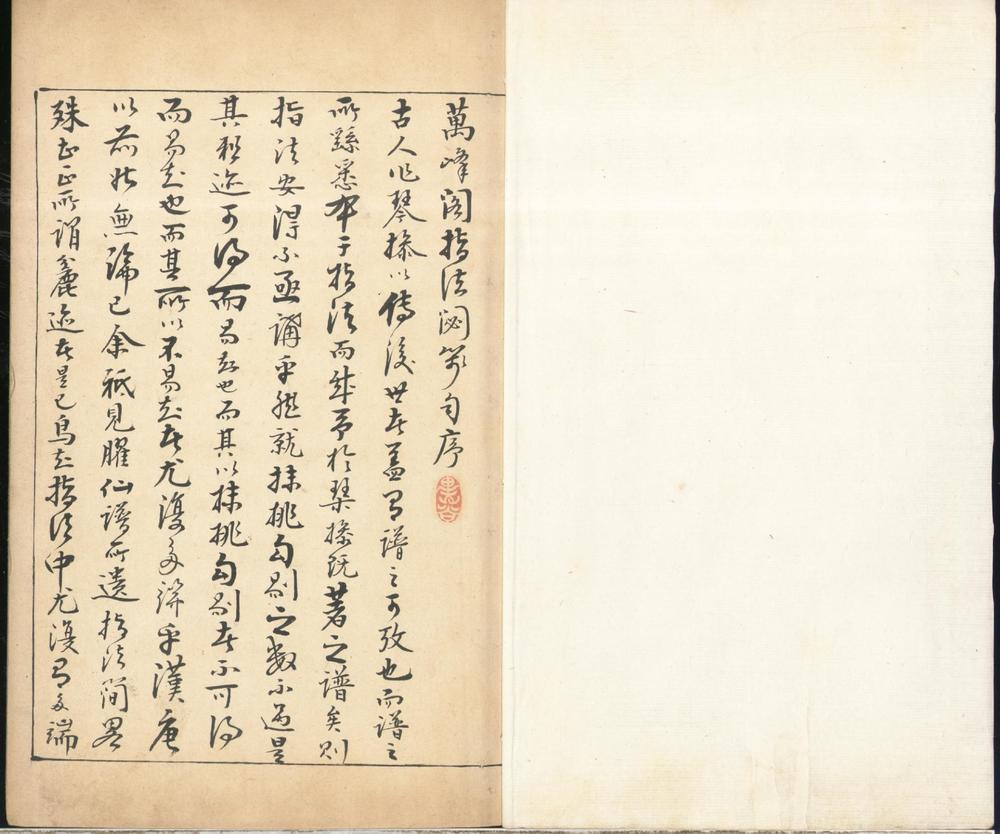 萬峰閣指法閟箋序
古人作琴操以傳後世者蓋有譜之可攷也而譜之
所繇悉本于指法而成予於琴操既著之譜矣則
指法安得不亟講乎然就抹挑勾剔之數不過是
其粗迹可得而易知也而其以抹挑勾剔者不可得
而易知也而其所以不易知者尤復多辨乎漢唐
以前姑無論已余祗見臞仙譜所遺指法簡畧
殊甚正所謂麤迹者是已烏知指法中尤復有多端